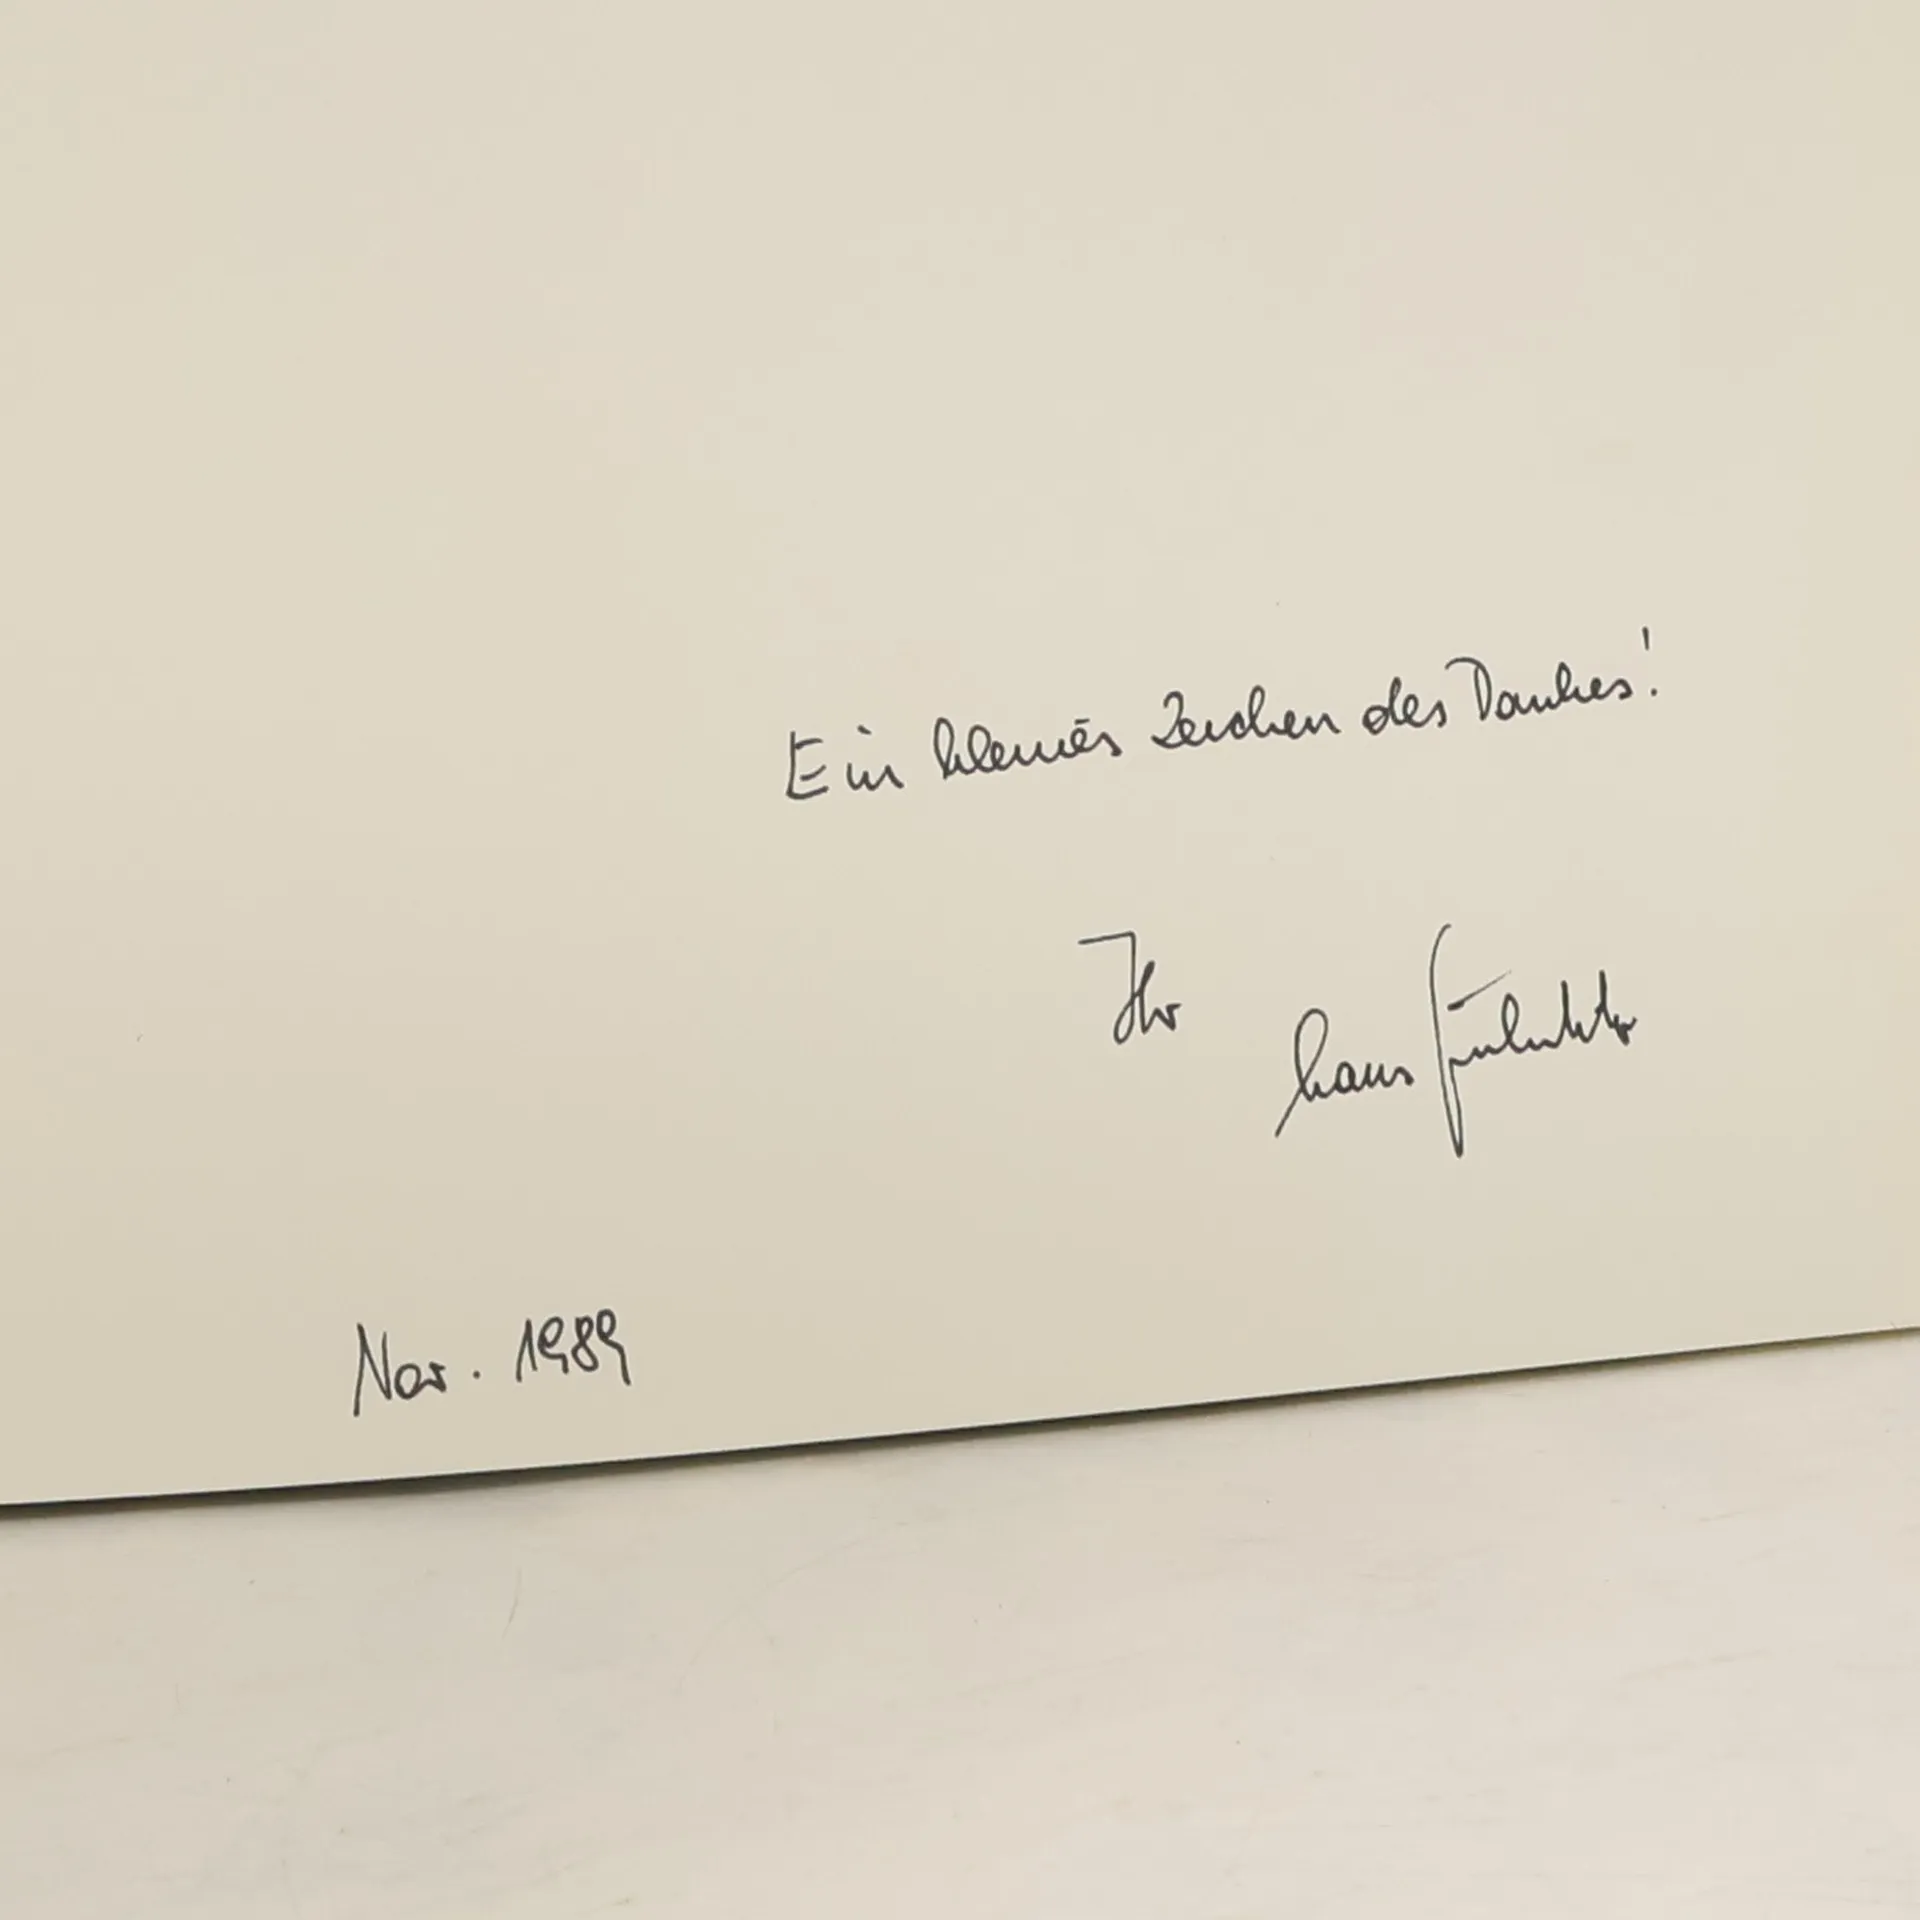 Ein kleines Zeichen des Dankes!
Ihr
hans
Nov. 1989